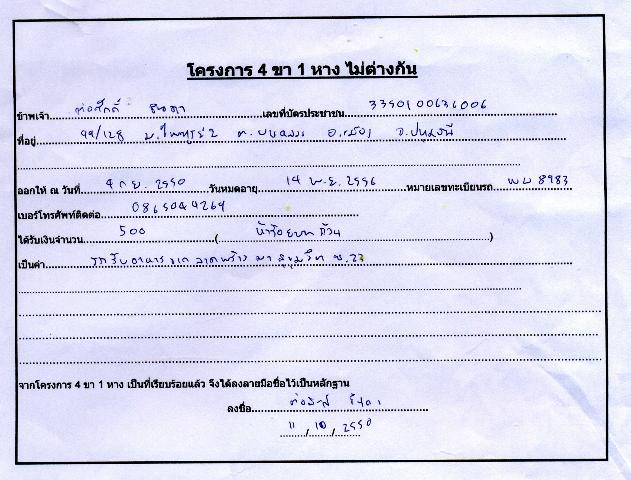 โครงการ 4 ขา 1 หาง ไม่ต่างกัน
ข้าพเจ้า ต่อศักดิ์ จินดา เลขที่บัตรประชาชน 3350100636006
ที่อยู่ 99/128 ม. ต. อ.เมือง จ.ปทุมธานี
ออกให้ ณ วันที่ 9 ก.ย. 2550 วันหมดอายุ 14 พ.ย. 2556 หมายเลขทะเบียนรถ พม 8983
เบอร์โทรศัพท์ติดต่อ 0865049264
ได้รับเงินจำนวน 500 (ห้าร้อยบาทถ้วน)
เป็นค่า รถรับอาหารจากลาดพร้าว มาสุขุมวิท ซ.22
จากโครงการ 4 ขา 1 หาง เป็นที่เรียบร้อยแล้ว จึงได้ลงลายมือชื่อไว้เป็นหลักฐาน
ลงชื่อ ต่อศักดิ์ จินดา
11 / 10 / 2550